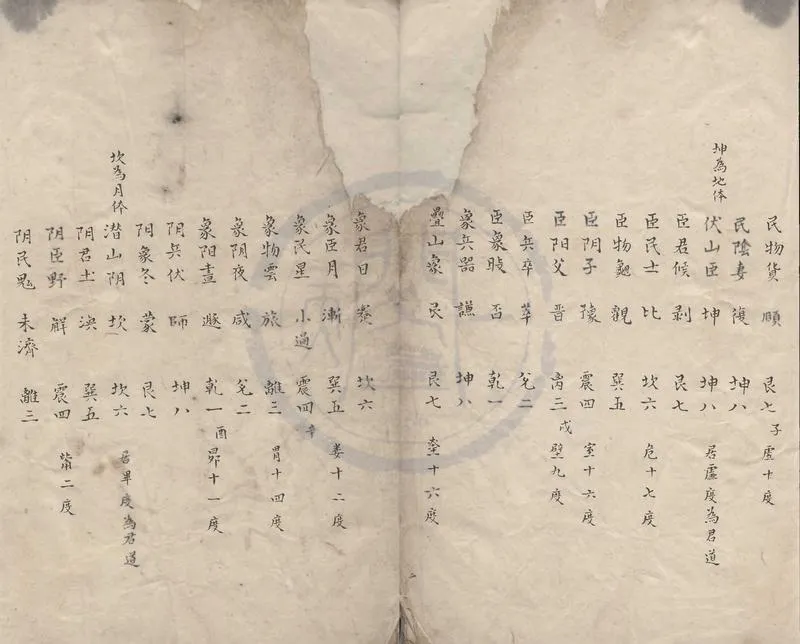 民物貨 頤 艮七 子 虛十度
民陰妻 復 坤八
坤為地体
伏山臣 坤 坤八 居虛度為君道
臣君候 剥 艮七
臣民士 比 坎六 危十七度
臣物龜 觀 巽五
臣阴子 豫 震四 室十六度
臣阳父 晋 离三 戌 壁九度
臣兵卒 萃 兊二
臣象 否 乾一
象兵器 謙 坤八
疊山象 艮 艮七 奎十六度
象君日 蹇 坎六
象臣月 漸 巽五 娄十二度
象民星 小過 震四 辛
象物雲 旅 離三 胃十四度
象阴夜 咸 兊二
象阳晝 遯 乾一 酉 昴十一度
阴兵伏 師 坤八
阳象冬 蒙 艮七
坎為月体
潜山阴 坎 坎六 居畢度為君道
阴君土 渙 巽五
阴臣野 解 震四 觜二度
阴民鬼 未濟 離三